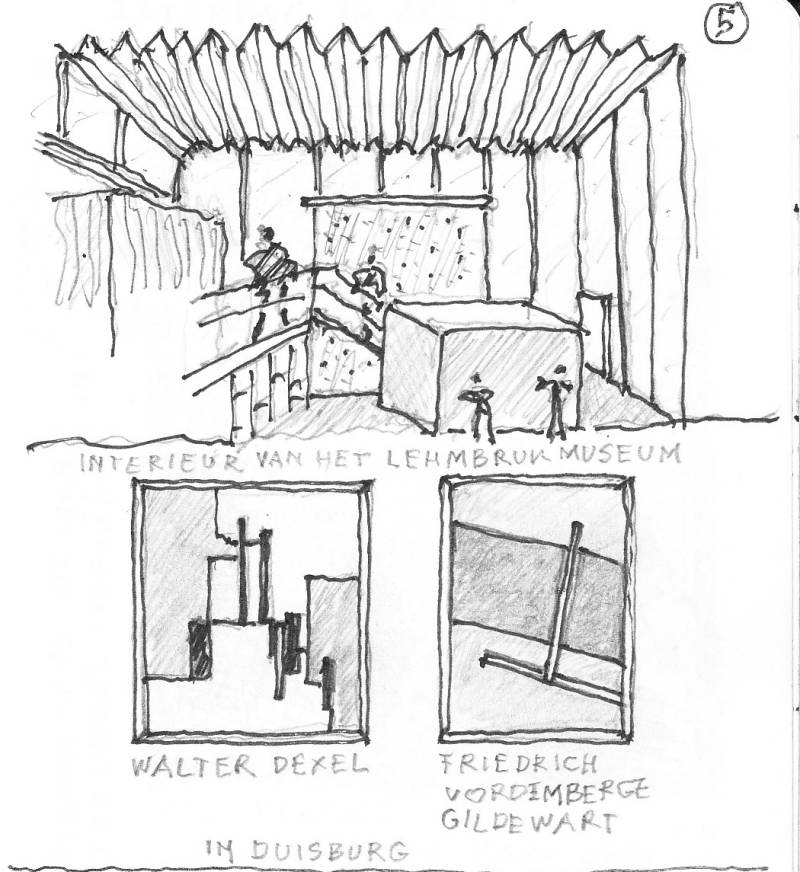 5
INTERIEUR VAN HET LEHMBRUK MUSEUM
WALTER DEXEL
FRIEDRICH
VORDEMBERGE
GILDEWART
IN DUISBURG